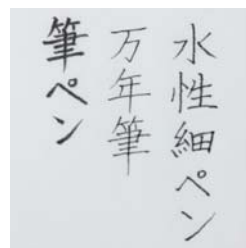 水性細ペン
万年筆
筆ペン